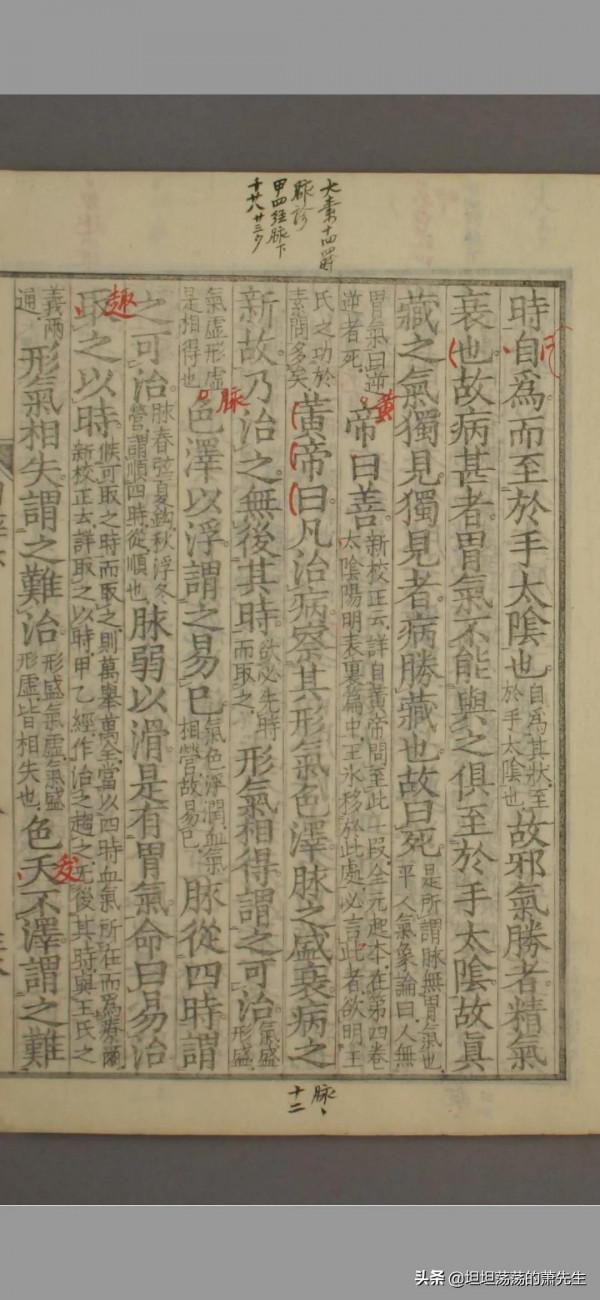 大素十四 
脉診
甲四經脉下
十廿八 廿三
時自爲而至於手太陰也自爲其狀至於手太陰也故邪氣勝者精氣
衰也故病甚者胃氣不能與之俱至於手太陰故眞
藏之氣獨見獨見者病勝藏也故曰死是所謂脉無胃氣也平人氣象論曰人無
胃氣曰逆逆者死黃帝曰善新校正云詳自黃帝問至此一段全元起本在第四卷太陰陽明表裏篇中王冰移於此處必言此者欲明王
氏之功於素問多矣黃帝曰凡治病察其形氣色澤脉之盛衰病之
新故乃治之無後其時欲必先時而取之形氣相得謂之可治氣盛形盛
氣虛形虛是相得也脉色澤以浮謂之易已氣色浮潤血氣相營故易已脉從四時謂
之可治脉春弦夏鉤秋浮冬營謂順四時從順也脉弱以滑是有胃氣命曰易治
趣取之以時候可取之時而取之則萬舉萬全當以四時血氣所在而爲療爾新校正云詳取之以時甲乙經作治之趨之无後其時與王氏之
義兩通形氣相失謂之難治形盛氣虛氣盛形虛皆相失也色夭不澤謂之難
脉
十二
头条 @坦坦荡荡的萧先生